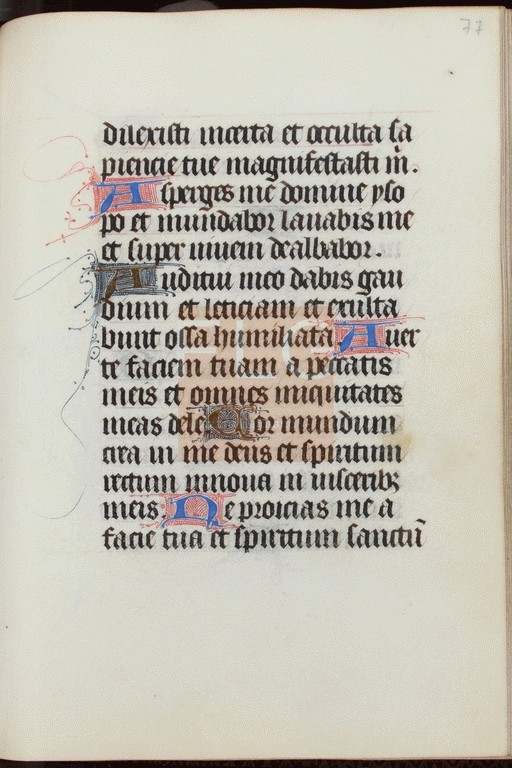 77
dilexisti incerta et occulta sa
piencie tue magnifestasti m̄.
Asperges me domine yso
po et mundabor lauabis me
et super niuem dealbabor.
Auditui meo dabis gau
dium et leticiam et exulta
bunt ossa humiliata Auer
te faciem tuam a peccatis
meis et omnes iniquitates
meas dele Cor mundum
crea in me deus et spiritum
rectum innoua in uisceribꝫ
meis. Ne proicias me a
facie tua et spiritum sanctū